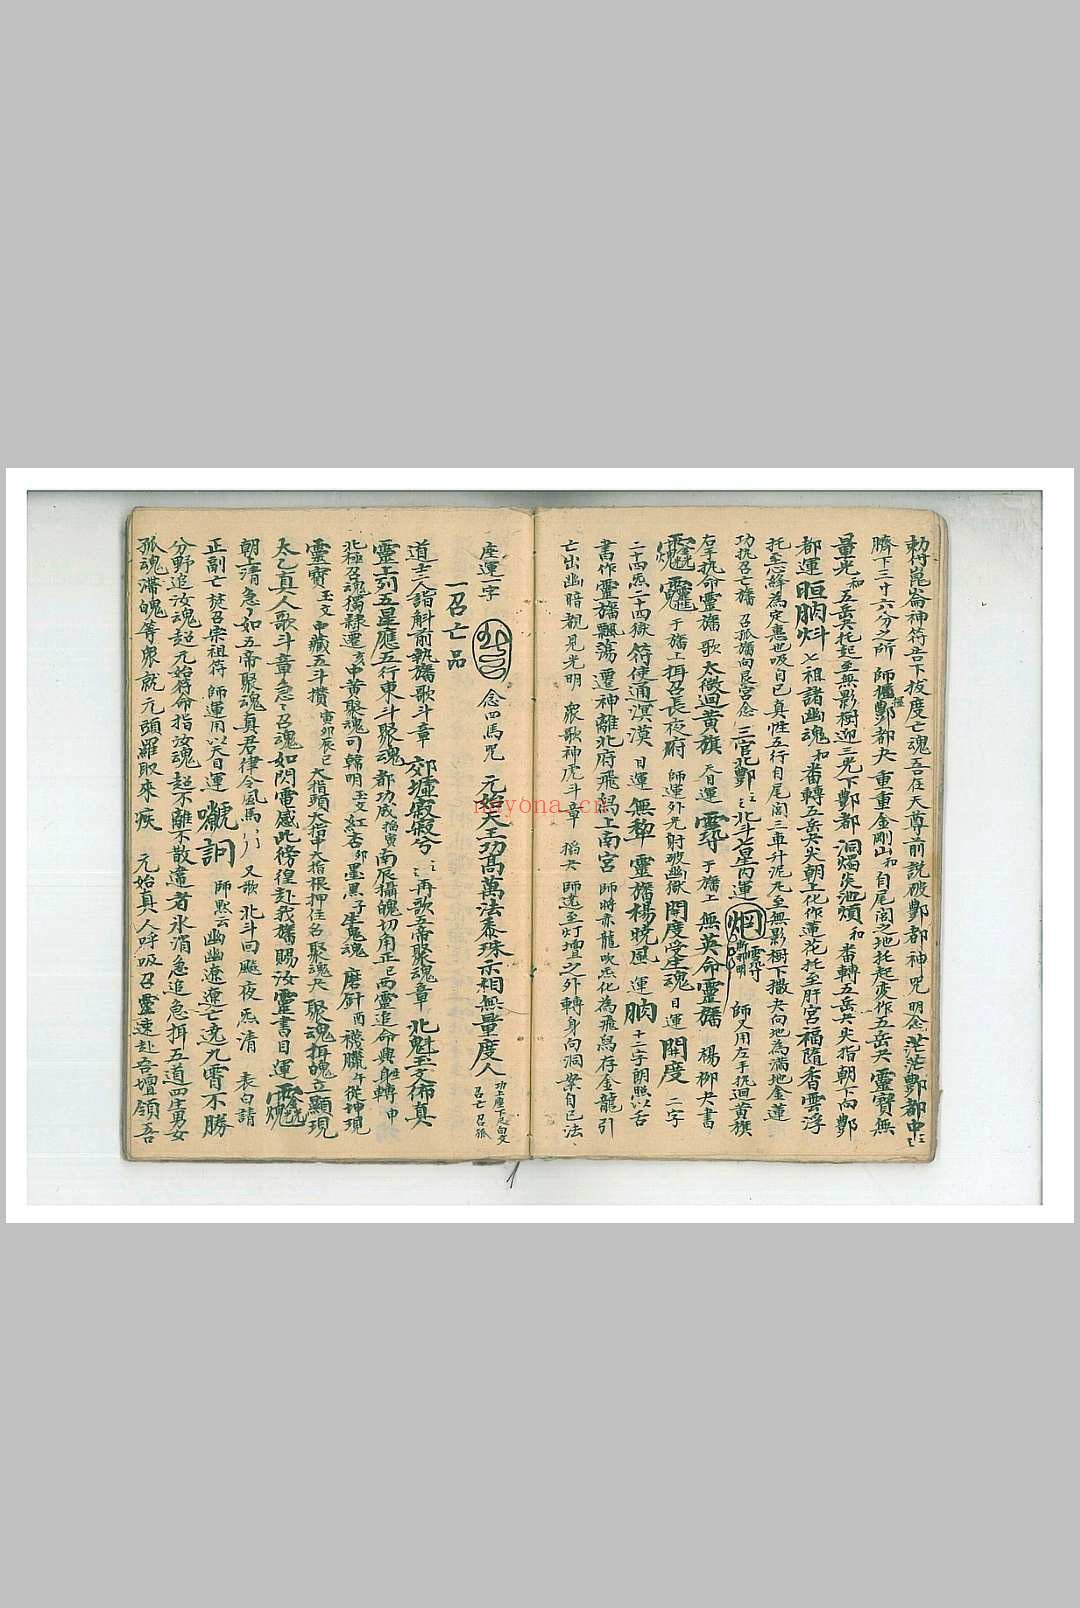 勅得崑崙神符告下拔度亡魂吾在天尊前說破酆都神咒 明念 茫茫酆都中
臍下三寸六分之所 師 酆都夬 重重金剛山 和自尾閭之地托起变作五岳夬 靈寶無
量光 和五岳夬托起至無影樹迎三光下酆都 洞燭炎池煩 和番轉五岳夬夬指朝下向酆
都運 七祖諸幽魂 和番轉五岳夬夬朝上化作蓮花托至肝宮 福隨香雲浮
托至心絳為定惠也吸自己真性五行自尾閭三車升泥丸至無影樹下撒夬向地為滿地金蓮
功执召亡旛 召孤旛向艮宮念 三官北酆 北斗七星內運 師又用左手执迴黃旗
右手执命靈旛 歌 太微迴黃旗 天目運 于旛上 無英命靈旛 楊柳夬書
于旛上 攝召長夜府 師運外光射破幽獄 開度受生魂 目運 開度 二字
二十四炁二十四獄 符使通溟漠 目運 無犂 靈旛楊曉風 運 十二字朗照以舌
書作 靈旛飄蕩 遷神離北府飛舄上南宮 師將赤龍吹炁化為飛舄存金龍引
亡出幽暗覩見光明 衆歌神虎斗章 搯夬 師遶至灯壇之外轉身向洞案自己法
座運一字 念四馬咒 元始天王功高萬法泰珠示相無量度人
召亡召孤
一召亡品
道士二人詣斛前執旛歌斗章 郊墟寂寂兮 再歌五帝聚魂章 北魁玉文佈真
靈上列五星應五行東斗聚魂 都功威 搯寅 南辰攝魄切用正 巳 西靈追命與身轉 申
北極召魂獨隸遷 亥 中黃聚魂司韓明 玉文 紅杏 卯 墨黑 子 生鬼魂 磨針 酉 襪臘 午 從坤現
靈寶 玉文 中藏五斗攢 寅卯辰巳 大指頭大指中大指根押住名聚魂夬 聚魂攝魄立顯現
太乙真人歌斗章急急召魂如閃電感此徬徨赴我旛賜汝靈書 目運
朝上清急急如五帝聚魂真君律令風馬 又歌 北斗回飈夜炁清 表白請
正副亡 旋召宗祖符 師運用以天目運 師默云 幽幽遼遼亡竞九霄不勝
分野追汝魂起元始符命指汝魂起不離不散違者氷消急追急攝五道四生男女
孤魂滯魄等衆就元頭羅取來疾 元始真人呼吸召靈速赴吾壇領吾
nayona.cn